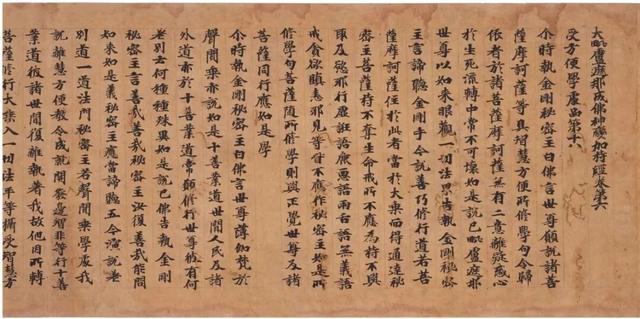 大毗盧遮那成佛神變加持經卷第六
受方便學處品第十八
尒時執金剛秘密主白佛言世尊願說諸菩
薩摩訶薩等具智慧方便所修學句令歸
依者於諸菩薩摩訶薩無有二意離疑惑心
於生死流轉中常不可壞如是說已毗盧遮那
世尊以如來眼觀一切法界告執金剛秘密
主言諦聽金剛手今說善巧修行道若菩
薩摩訶薩住於此者當於大乘而得通達秘
密主菩薩持不奪生命戒所不應為持不與
取及慾邪行虛誑語麁惡語兩舌語無義語
戒貪欲瞋恚邪見等皆不應作秘密主如是所
修學句菩薩隨所修學則與正覺世尊及諸
菩薩同行應如是學
尒時執金剛秘密主白佛言世尊薄伽梵於
聲聞乘亦說如是十善業道世間人民及諸
外道亦於十善業道常願修行世尊彼有何
差別云何種種殊異如是說已佛告執金剛
秘密主言善哉善哉秘密主汝復善哉能問
如來如是義秘密主應當諦聽吾今演說差
別道一道法門秘密主若聲聞乘學處我
說離慧方便教令成就開發邊智非等行十善
業道彼諸世間復離執著我故他因所轉
菩薩修行大乘入一切法平等攝受智慧方